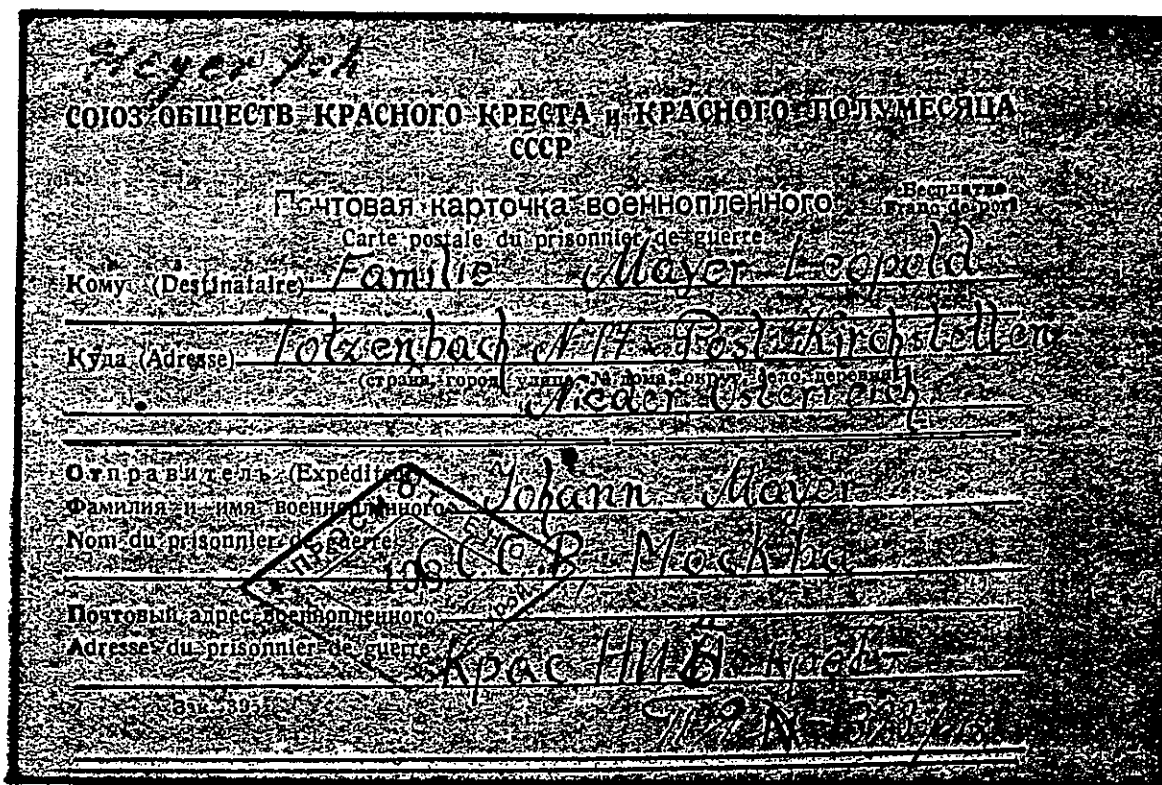 Mayer Joh
СОЮЗ ОБЩЕСТВ КРАСНОГО КРЕСТА и КРАСНОГО ПОЛУМЕСЯЦА
СССР
Почтовая карточка военнопленного
Бесплатно
Franc de port
Carte postale du prisonnier de guerre
Кому (Destinataire) Familie Mayer Leopold
Куда (Adresse) Totzenbach N 17 Post Kirchstetten
(страна, город, улица, № дома, округ, село, деревня)
Nieder Österreich
Отправитель (Expéditeur) Johann Mayer
Фамилия и имя военнопленного
Nom du prisonnier de guerre C.C.C.P. Москва
Почтовый адрес военнопленного
Adresse du prisonnier de guerre Крас НИЙ крест
Зак.